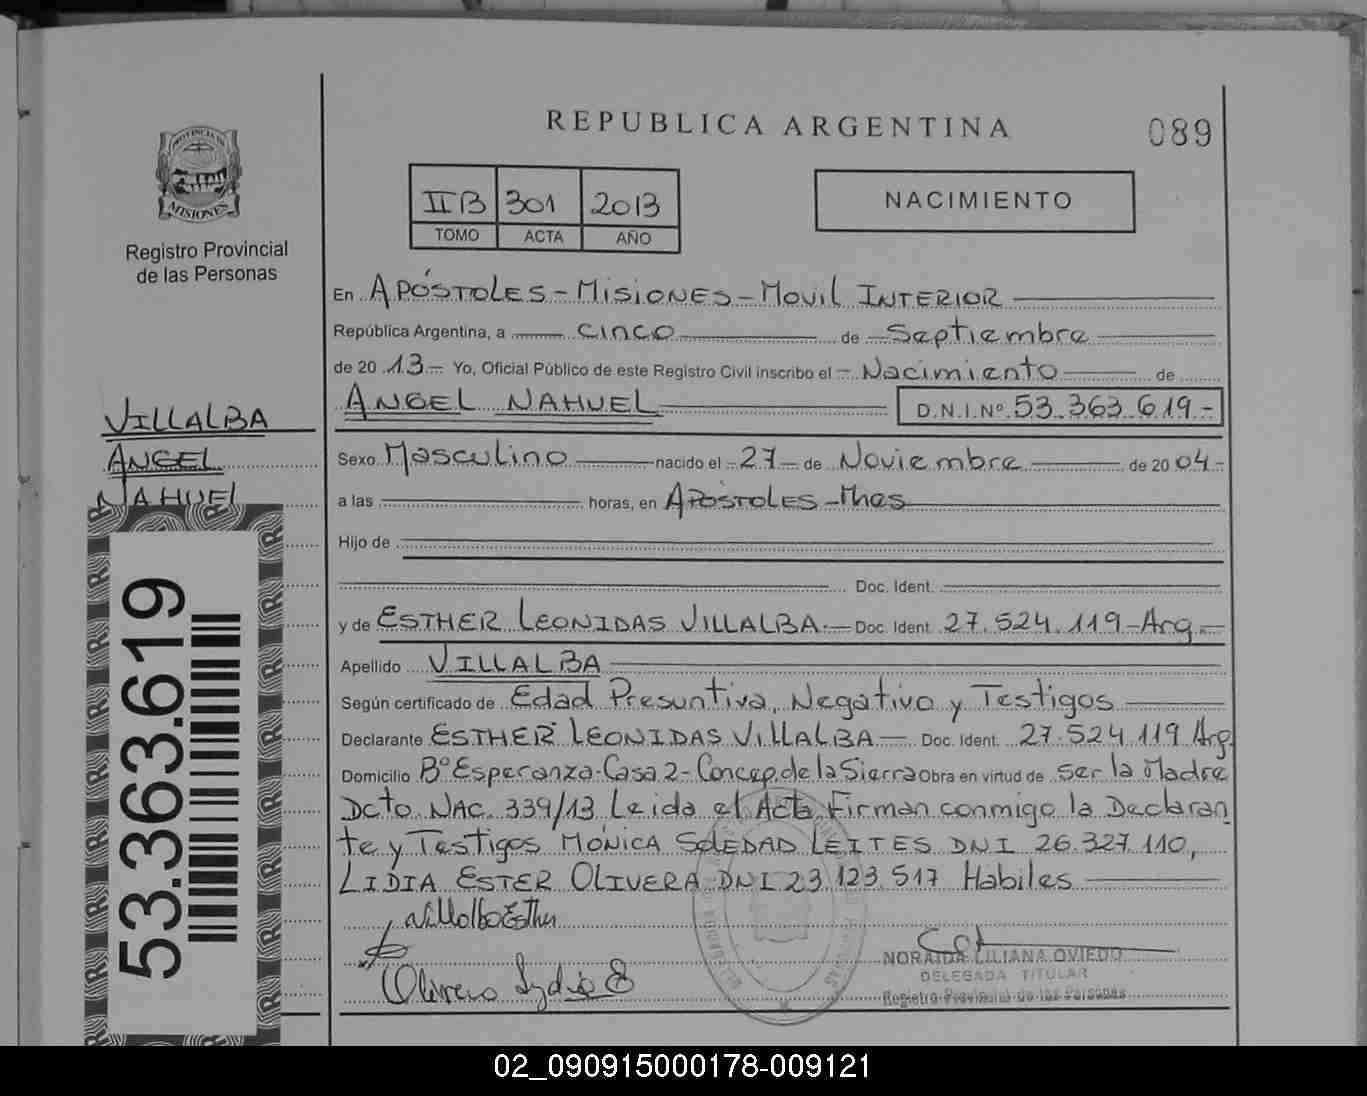 REPUBLICA ARGENTINA
089
PROVINCIA DE
MISIONES
Registro Provincial
de las Personas
IIB 301 2013
TOMO ACTA AÑO
NACIMIENTO
En APÓSTOLES - MISIONES - MOVIL INTERIOR
República Argentina, a cinco de Septiembre
de 20 13 - Yo, Oficial Público de este Registro Civil inscribo el - Nacimiento de
ANGEL NAHUEL D.N.I.Nº 53.363.619.-
VILLALBA
ANGEL
NAHUEL
Sexo Masculino nacido el - 27 - de Noviembre de 20 04 -
a las horas, en APÓSTOLES - Mnes
Hijo de
Doc. Ident.
y de ESTHER LEONIDAS VILLALBA.- Doc. Ident. 27.524.119-Arg.-
Apellido VILLALBA
Según certificado de Edad Presuntiva, Negativo y Testigos
Declarante ESTHER LEONIDAS VILLALBA - Doc. Ident. 27.524.119 Arg.
Domicilio Bº Esperanza-Casa 2-Concep. de la Sierra Obra en virtud de ser la Madre
Dcto. NAC. 339/13 Leida el Acta Firman conmigo la Declaran
te y Testigos MÓNICA SOLEDAD LEITES DNI 26.327.110,
LIDIA ESTER OLIVERA DNI 23.123.517 Habiles
Villalba Esther
Olivera Lydia E
NORAIDA LILIANA OVIEDO
DELEGADA TITULAR
Registro Provincial de las Personas
53.363.619
02_090915000178-009121